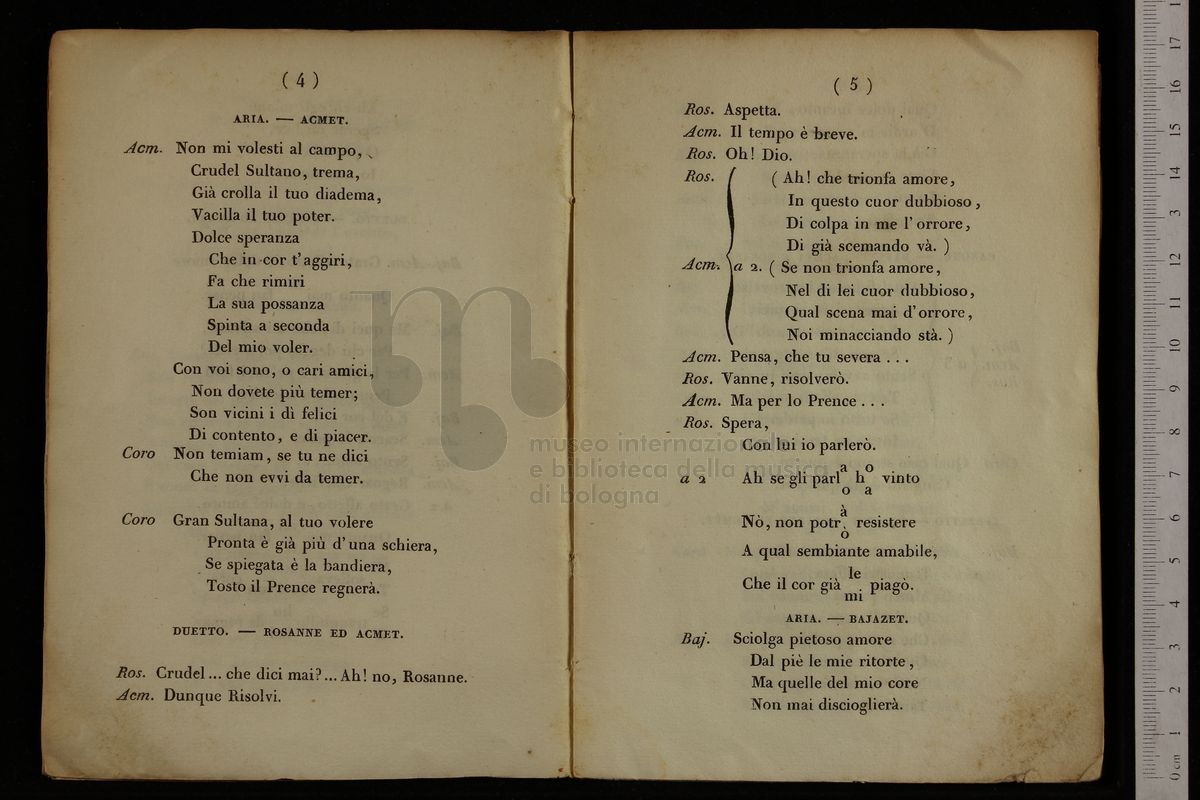 ( 4 )
ARIA. — ACMET.
Acm. Non mi volesti al campo,
Crudel Sultano, trema,
Già crolla il tuo diadema,
Vacilla il tuo poter.
Dolce speranza
Che in cor t'aggiri,
Fa che rimiri
La sua possanza
Spinta a seconda
Del mio voler.
Con voi sono, o cari amici,
Non dovete più temer;
Son vicini i dì felici
Di contento, e di piacer.
Coro Non temiam, se tu ne dici
Che non evvi da temer.
Coro Gran Sultana, al tuo volere
Pronta è già più d'una schiera,
Se spiegata è la bandiera,
Tosto il Prence regnerà.
DUETTO. — ROSANNE ED ACMET.
Ros. Crudel... che dici mai?... Ah! no, Rosanne.
Acm. Dunque Risolvi.
( 5 )
Ros. Aspetta.
Acm. Il tempo è breve.
Ros. Oh! Dio.
Ros. ( Ah! che trionfa amore,
In questo cuor dubbioso,
Di colpa in me l'orrore,
Di già scemando và. )
Acm. a 2. ( Se non trionfa amore,
Nel di lei cuor dubbioso,
Qual scena mai d'orrore,
Noi minacciando stà. )
Acm. Pensa, che tu severa . . .
Ros. Vanne, risolverò.
Acm. Ma per lo Prence . . .
Ros. Spera,
Con lui io parlerò.
a 2 Ah se gli parl a/o h o/a vinto
Nò, non potr à/ò resistere
A qual sembiante amabile,
Che il cor già le/mi piagò.
ARIA. — BAJAZET.
Baj. Sciolga pietoso amore
Dal piè le mie ritorte,
Ma quelle del mio core
Non mai discioglierà.
museo internazionale
e biblioteca della musica
di bologna
0 cm 1 2 3 4 5 6 7 8 9 10 11 12 13 14 15 16 17